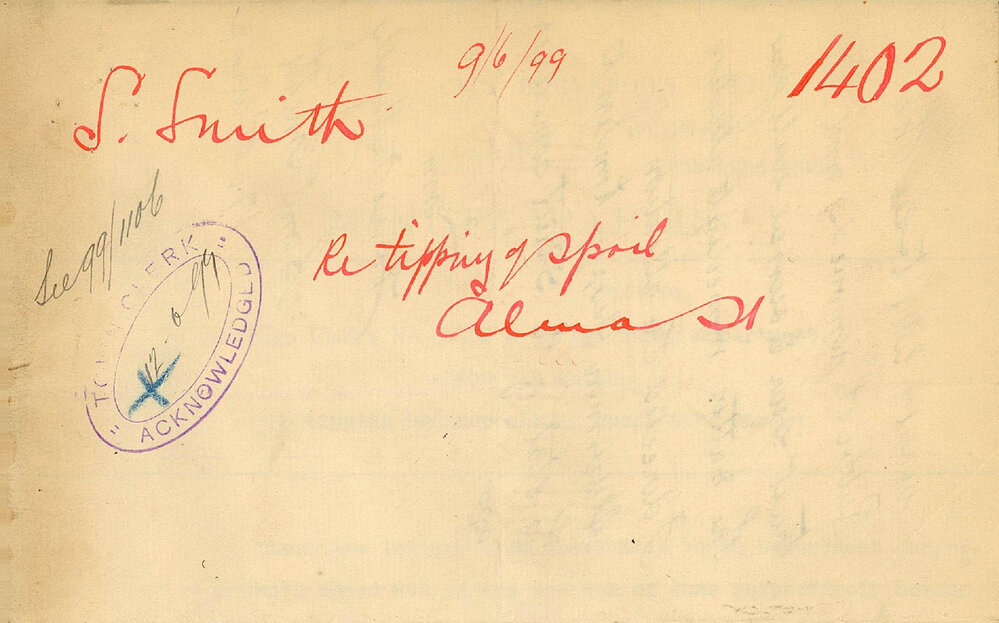 9/6/99
1402
S. Smith
See 99/1106
TOWN CLERK
12-6-99
ACKNOWLEDGED
Re tipping of spoil
Alma St